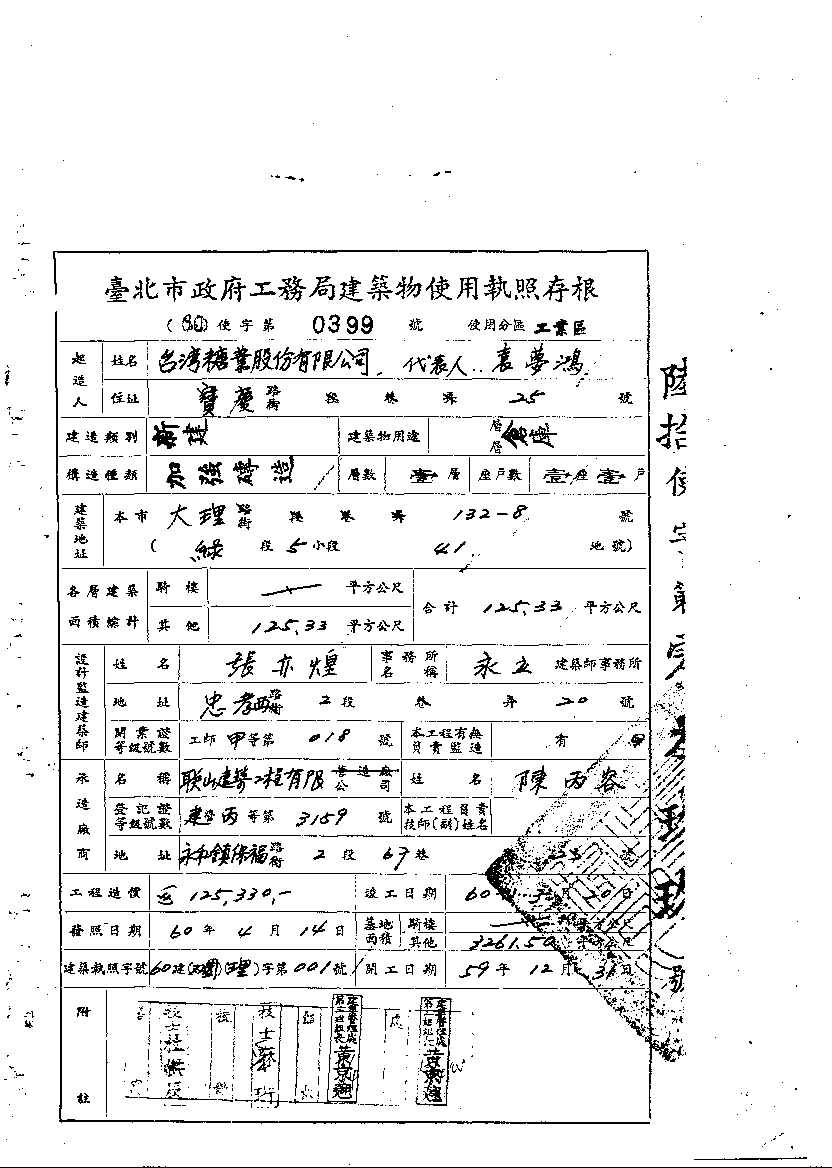 臺北市政府工務局建築物使用執照存根
(60)使字第 0399 號 使用分區 工業區
起造人 姓名 台湾糖業股份有限公司. 代表人 袁夢鴻
住址 寶慶 路街 段 巷 弄 25 號
建造類別 新建 建築物用途 層層 倉庫
構造種類 加強磚造 層數 壹層 座戶數 壹座壹戶
建築地址 本市 大理 路街 段 巷 弄 132-8 號
( 綠 段 5 小段 41 地號)
各層建築面積總計 騎樓 平方公尺 合計 125.33 平方公尺
其他 125.33 平方公尺
設計監造建築師 姓名 張亦煌 事務所名稱 永立 建築師事務所
地址 忠孝西 路街 2 段 巷 弄 20 號
開業證等級號數 工師 甲 等第 018 號 本工程有無負責監造 有
承造廠商 名稱 聯山建築工程有限 營造廠公司 姓名 陳丙容
登記證等級號數 建營丙 等第 3159 號 本工程負責技師(副)姓名
地址 永和鎮保福 路街 2 段 67 巷 號
工程造價 125,330.- 竣工日期 60 月 20 日
發照日期 60 年 4 月 14 日 基地面積 騎樓 平方公尺
其他 3261.50 平方公尺
建築執照字號 60 建 字第 001 號 開工日期 59 年 12 月 31 日
附註
陸拾使字第 號